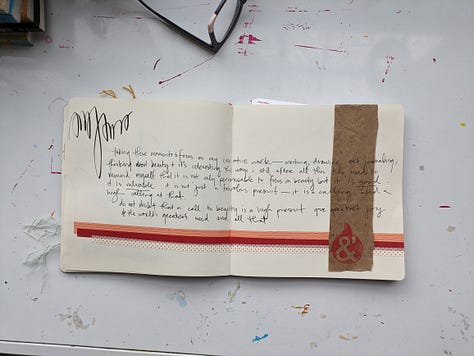 taking these moments to focus on my creative work — writing, drawing, art journaling,
thinking about beauty & it's interesting the way i still, after all this time, need to
remind myself that it is not only permissable to focus on beauty but it is good
it is valuable it is not just a frivolous pursuit — it is a calling and a
high calling at that
do not doubt that a call to beauty is a high pursuit your greatest joy
& the world's greatest need and all that
&